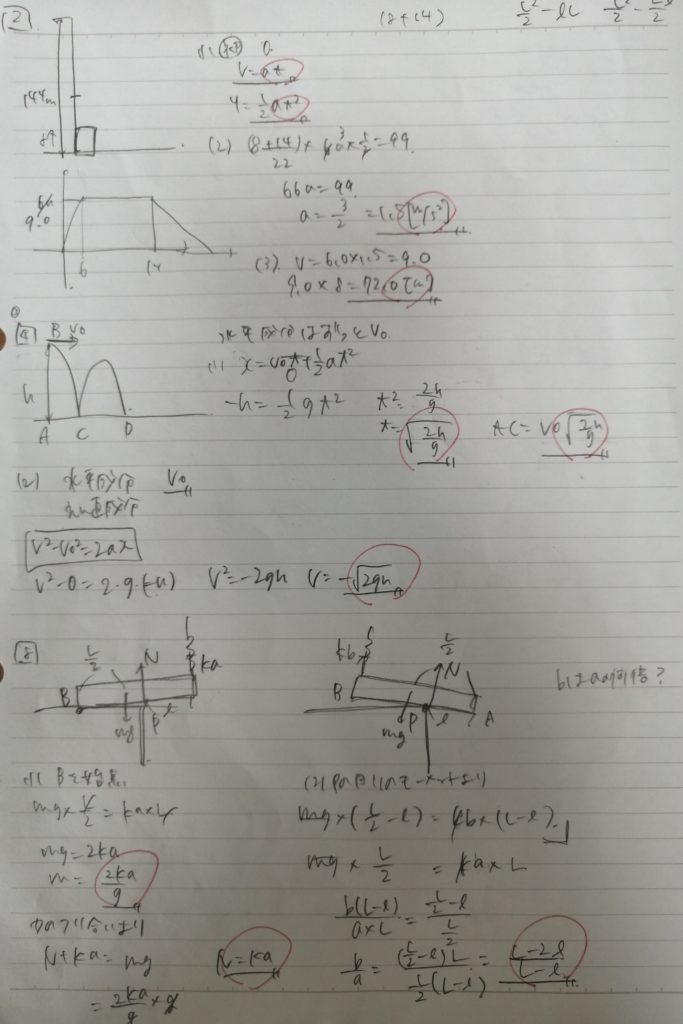 [2]
(8+14)
144m
(1)
a
v=at
y=1/2at²
(2) (8+14)×6a×1/2=99
22
3
66a=99
a=3/2=1.5[m/s²]
6a
9.0
6
14
(3) v=6.0×1.5=9.0
9.0×8=72.0[m]
[4]
B v₀
h
A C D
水平成分はずっとv₀
(1) x=v₀t+1/2at²
0
-h=1/2gt²
t²=2h/g
t=√(2h/g)
AC=v₀√(2h/g)
(2) 水平成分 v₀
鉛直成分
v²-v₀²=2ax
v²-0=2・g・(-h) v²=-2gh v=-√2gh
[8]
L/2
N
ka
B
mg
P
l
kb
L/2
N
B
mg
P
l
A
bはaの何倍?
(1) Bを始点
mg×L/2=ka×L
mg=2ka
m=2ka/g
力のつり合いより
N+ka=mg
=2ka/g×g
N=ka
(2) Pの回りのモーメントより
mg×(L/2-l)=kb×(L-l)
mg×L/2=ka×L
b(L-l)/a×L=(L/2-l)/(L/2)
b/a=(L/2-l)L/1/2(L-l)=L-2l/L-l